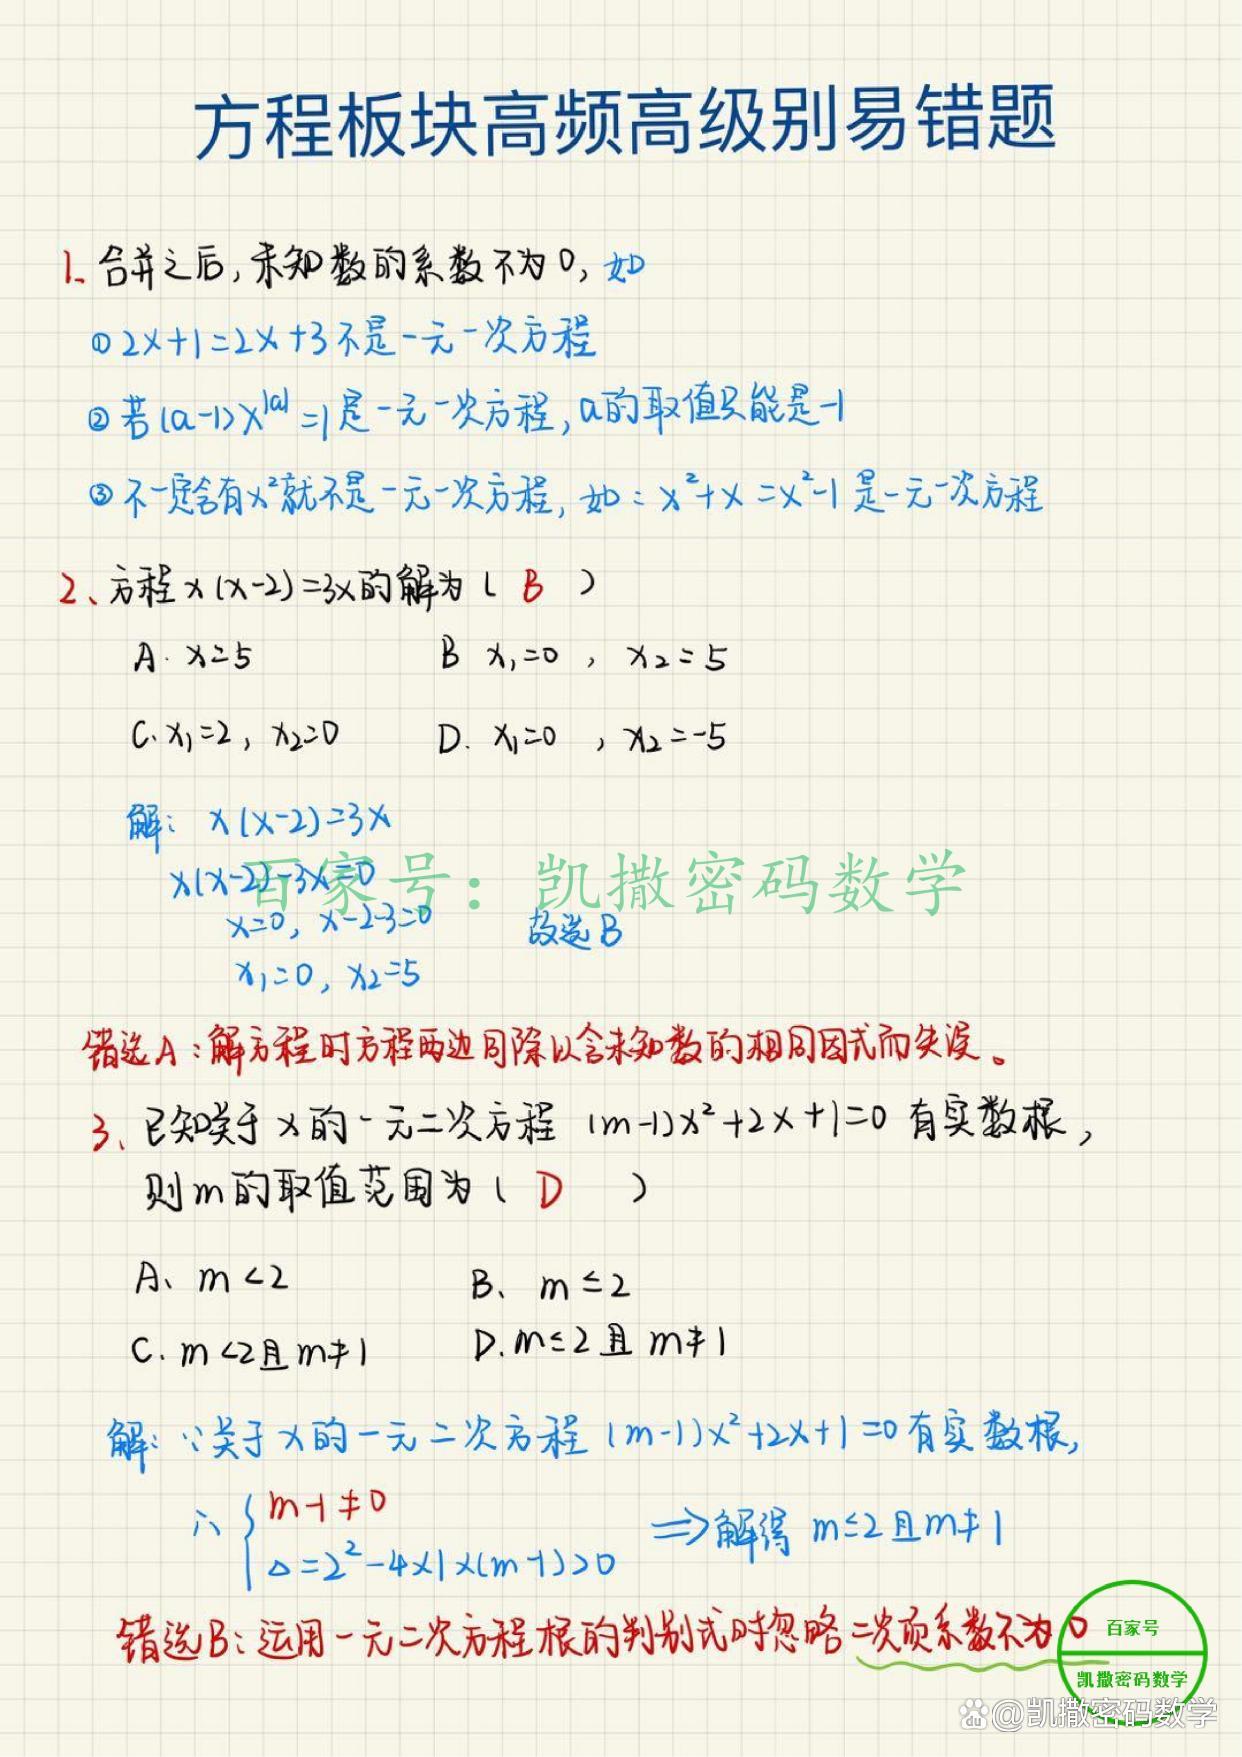 方程板块高频高级别易错题
1、合并之后,未知数的系数不为0,如
① 2x+1=2x+3不是一元一次方程
② 若(a-1)x^|a|=1是一元一次方程,a的取值只能是-1
③ 不一定含有x²就不是一元一次方程,如:x²+x=x²-1是一元一次方程
2、方程x(x-2)=3x的解为( B )
A. x=5 B x₁=0 , x₂=5
C. x₁=2, x₂=0 D. x₁=0 , x₂=-5
解: x(x-2)=3x
x(x-2)-3x=0
x=0, x-2-3=0 故选B
x₁=0, x₂=5
百家号:凯撒密码数学
错选A:解方程时方程两边同除以含未知数的相同因式而失误。
3、已知关于x的一元二次方程 (m-1)x²+2x+1=0 有实数根,
则m的取值范围为( D )
A、m<2 B、m≤2
C. m<2且m≠1 D. m≤2且m≠1
解:∵关于x的一元二次方程(m-1)x²+2x+1=0有实数根,
∴ { m-1≠0
△=2²-4×1×(m-1)>0 ⇒解得 m≤2且m≠1
错选B:运用一元二次方程根的判别式时忽略二次项系数不为0
百家号
凯撒密码数学
@凯撒密码数学